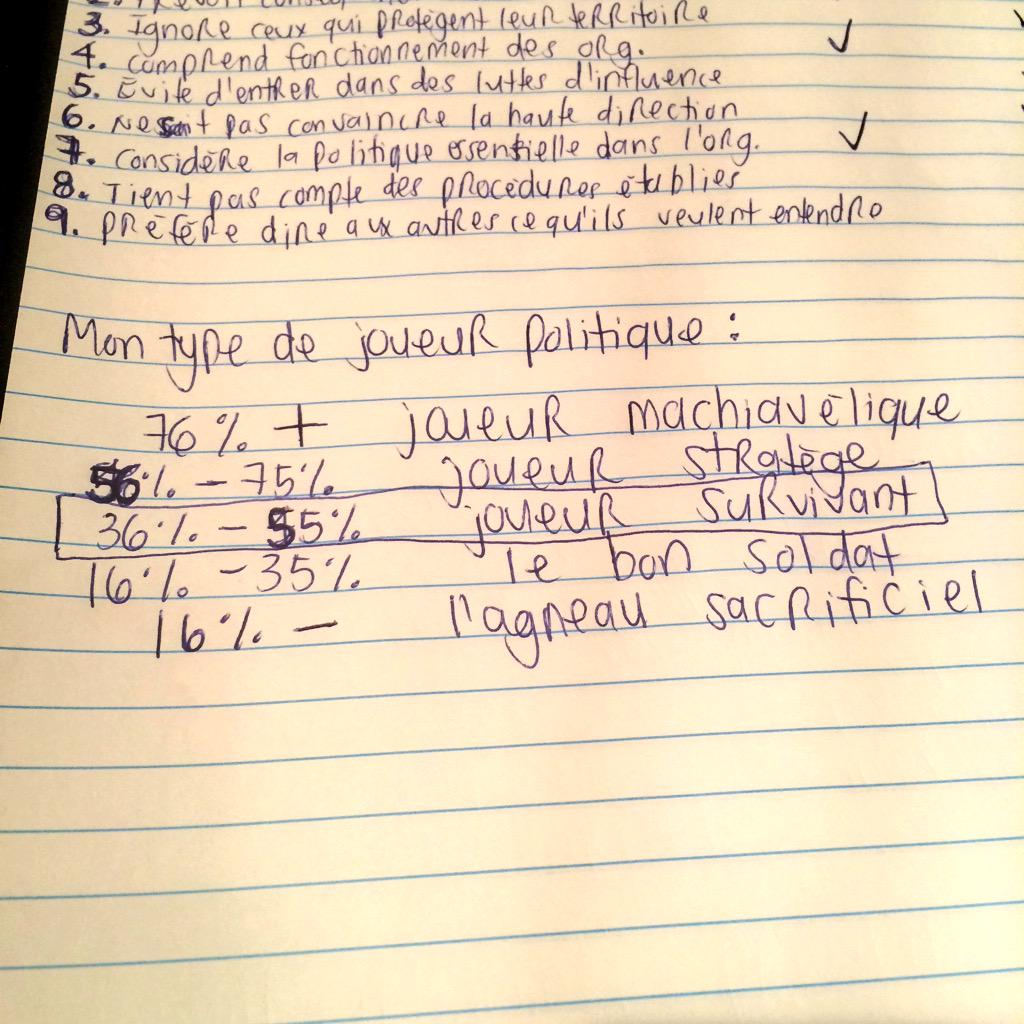 3. Ignore ceux qui protègent leur territoire ✓
4. comprend fonctionnement des org.
5. Évite d'entrer dans des luttes d'influence
6. Ne sait pas convaincre la haute direction
7. considère la politique essentielle dans l'org. ✓
8. Tient pas compte des procédures établies
9. préfère dire aux autres ce qu'ils veulent entendre
Mon type de joueur politique :
76% + joueur machiavélique
56% - 75% joueur stratège
36% - 55% joueur survivant
16% - 35% le bon soldat
16% - l'agneau sacrificiel